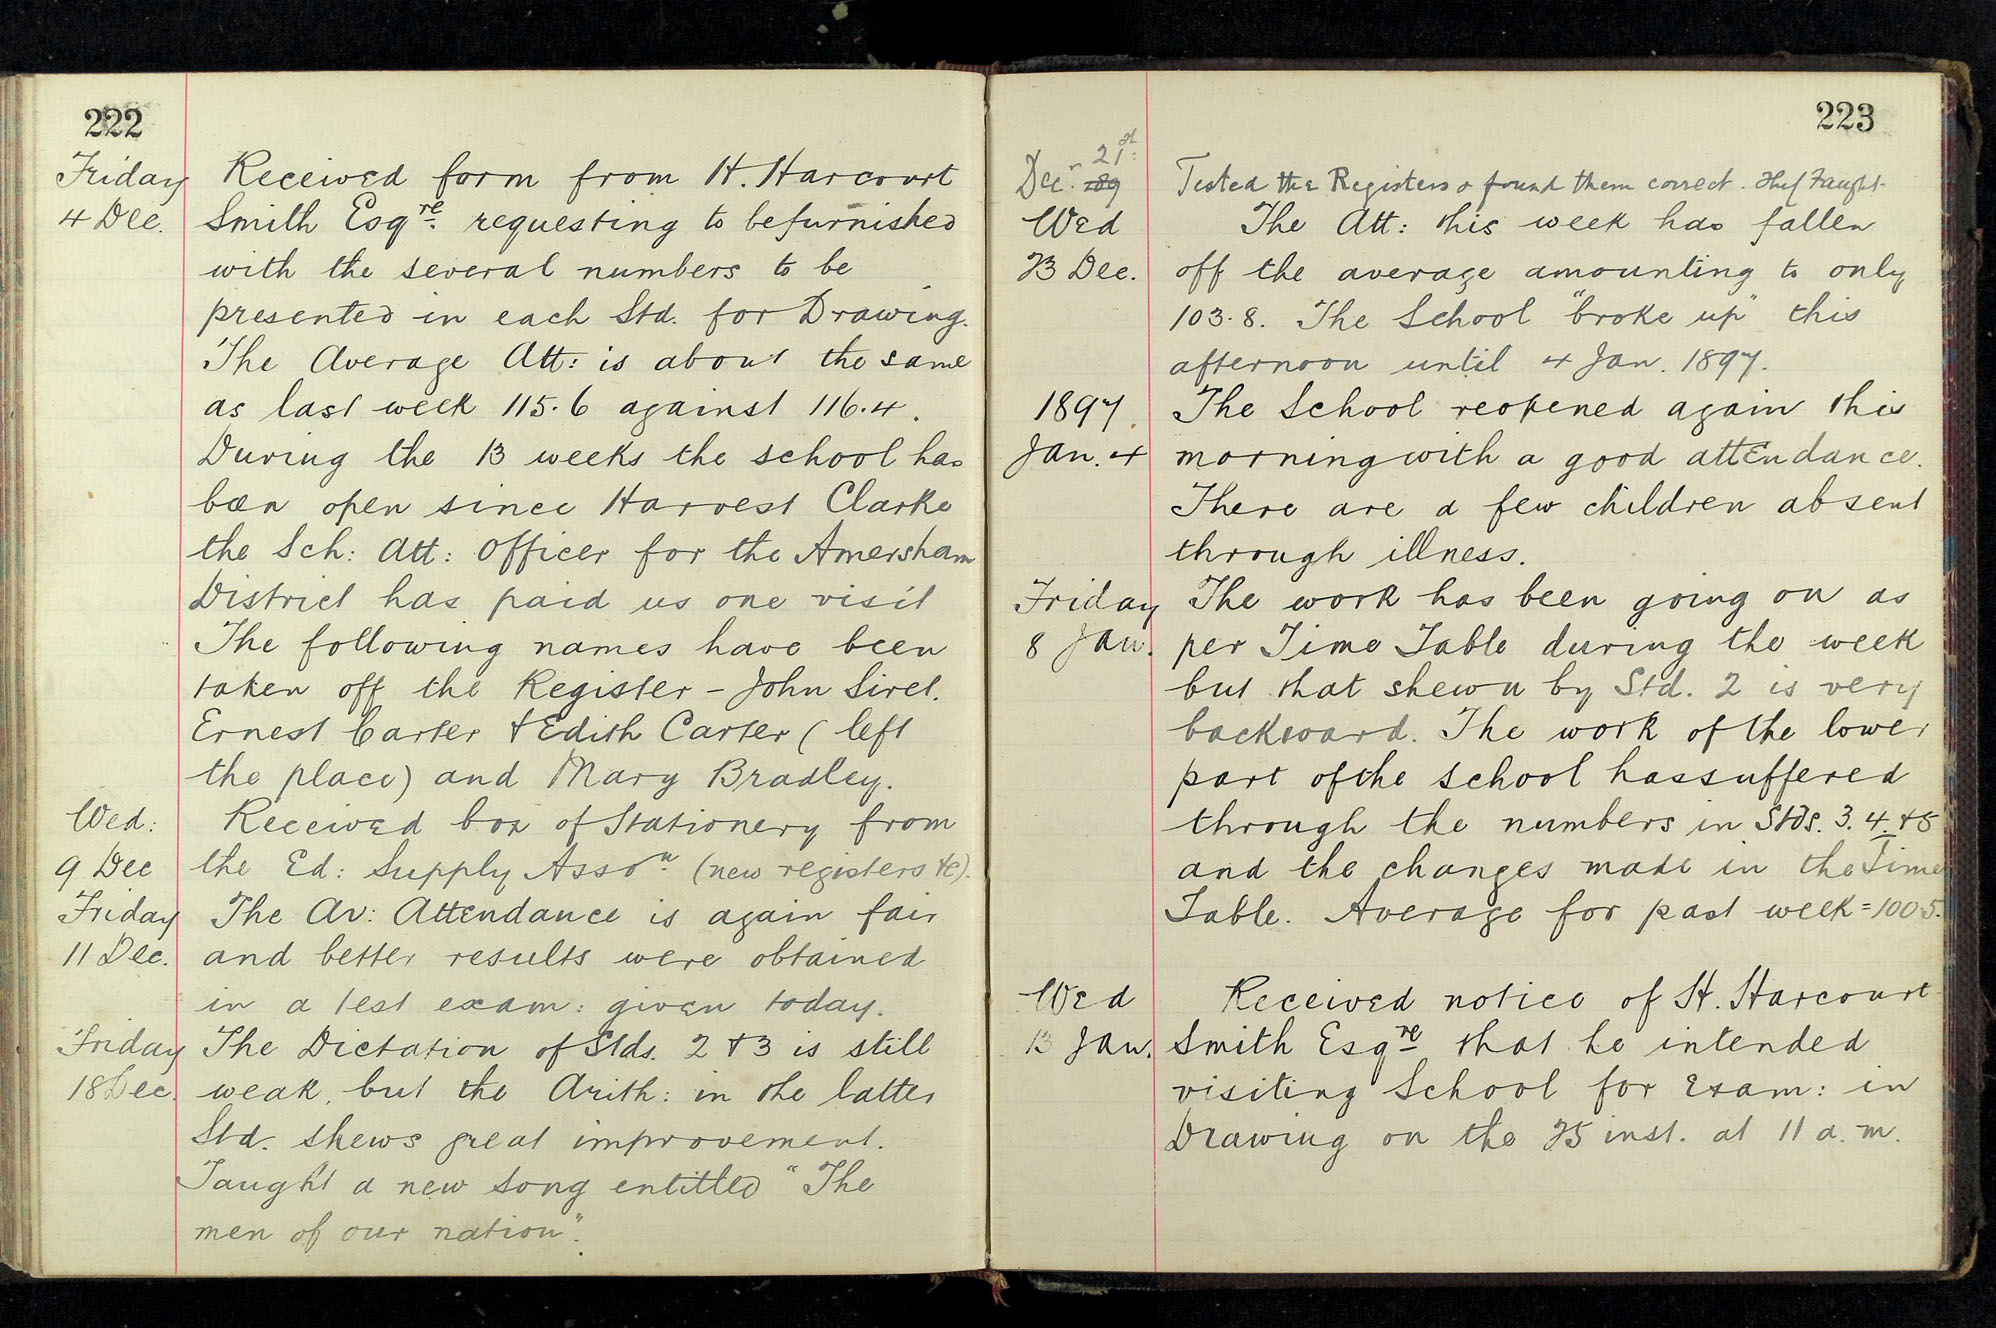 222
Friday Received form from H. Harcourt
4 Dec. Smith Esqre. requesting to be furnished
with the several numbers to be
presented in each Std. for Drawing.
The Average Att: is about the same
as last week 115.6 against 116.4.
During the 13 weeks the school has
been open since Harvest Clarke
the Sch: Att: Officer for the Amersham
District has paid us one visit
The following names have been
taken off the Register – John Siret.
Ernest Carter & Edith Carter (left
the place) and Mary Bradley.
Wed: Received box of Stationery from
9 Dec the Ed: Supply Asson. (new registers &c).
Friday The Av: Attendance is again fair
11 Dec. and better results were obtained
in a test exam: given today.
Friday The Dictation of Stds. 2 & 3 is still
18 Dec. weak, but the Arith: in the latter
Std. shews great improvement.
Taught a new song entitled "The
men of our nation".
223
Dec. 21st. Tested the Registers & found them correct.
Wed The Att: this week has fallen
23 Dec. off the average amounting to only
103.8. The School "broke up" this
afternoon until 4 Jan. 1897.
1897. The School reopened again this
Jan. 4 morning with a good attendance.
There are a few children absent
through illness.
Friday The work has been going on as
8 Jan. per Time Table during the week
but that shewn by Std. 2 is very
backward. The work of the lower
part of the school has suffered
through the numbers in Stds. 3. 4. & 5
and the changes made in the Time
Table. Average for past week = 100.5.
Wed Received notice of H. Harcourt
13 Jan. Smith Esqre that he intended
visiting School for Exam: in
Drawing on the 25 inst. at 11 a.m.